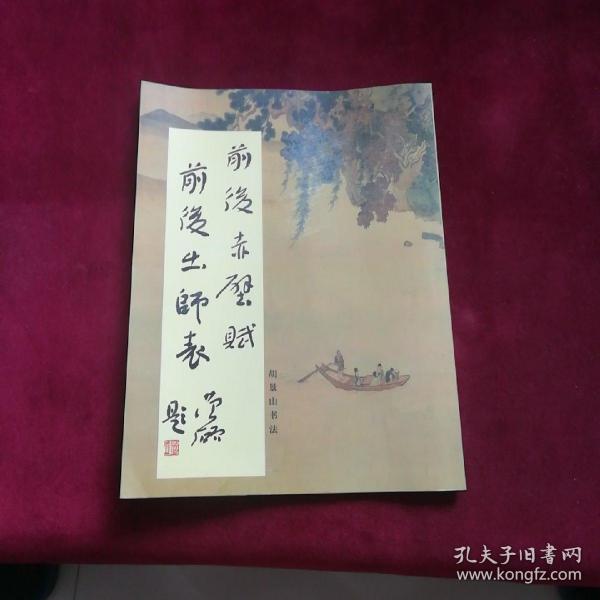 前後赤壁賦
前後出師表
題
胡景山书法
孔夫子旧書网
www.kongfz.com